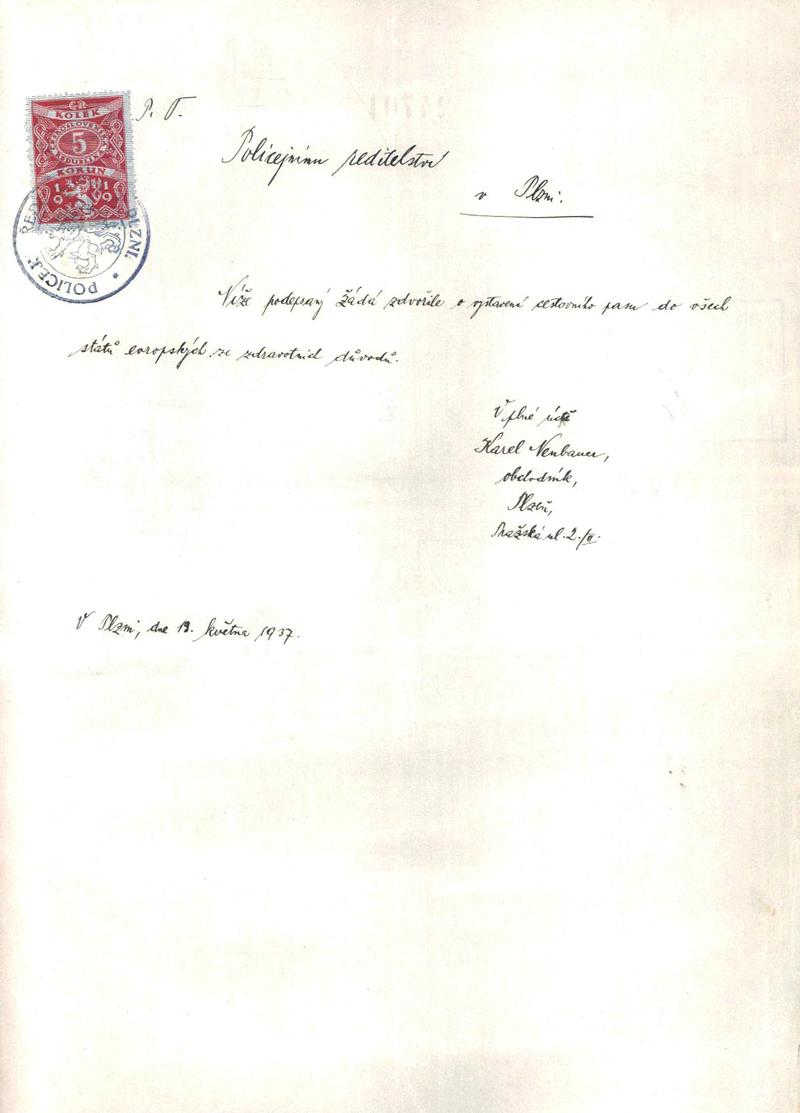 P. T.
Policejnímu reditelství
v Plzni.
Níže podepsaný žádá zdvořile o vystavení cestovního pasu do všech
států evropských ze zdravotních důvodů.
V plné úctě
Karel Neubauer,
obchodník,
Plzeň,
Pražská ul. 2./II.
V Plzni, dne 19. května 1937.
KOLEK
ČESKOSLOVENSKÁ
5
REPUBLIKA
KORUN
1919
POLICEJ. ŘED PLZNI.